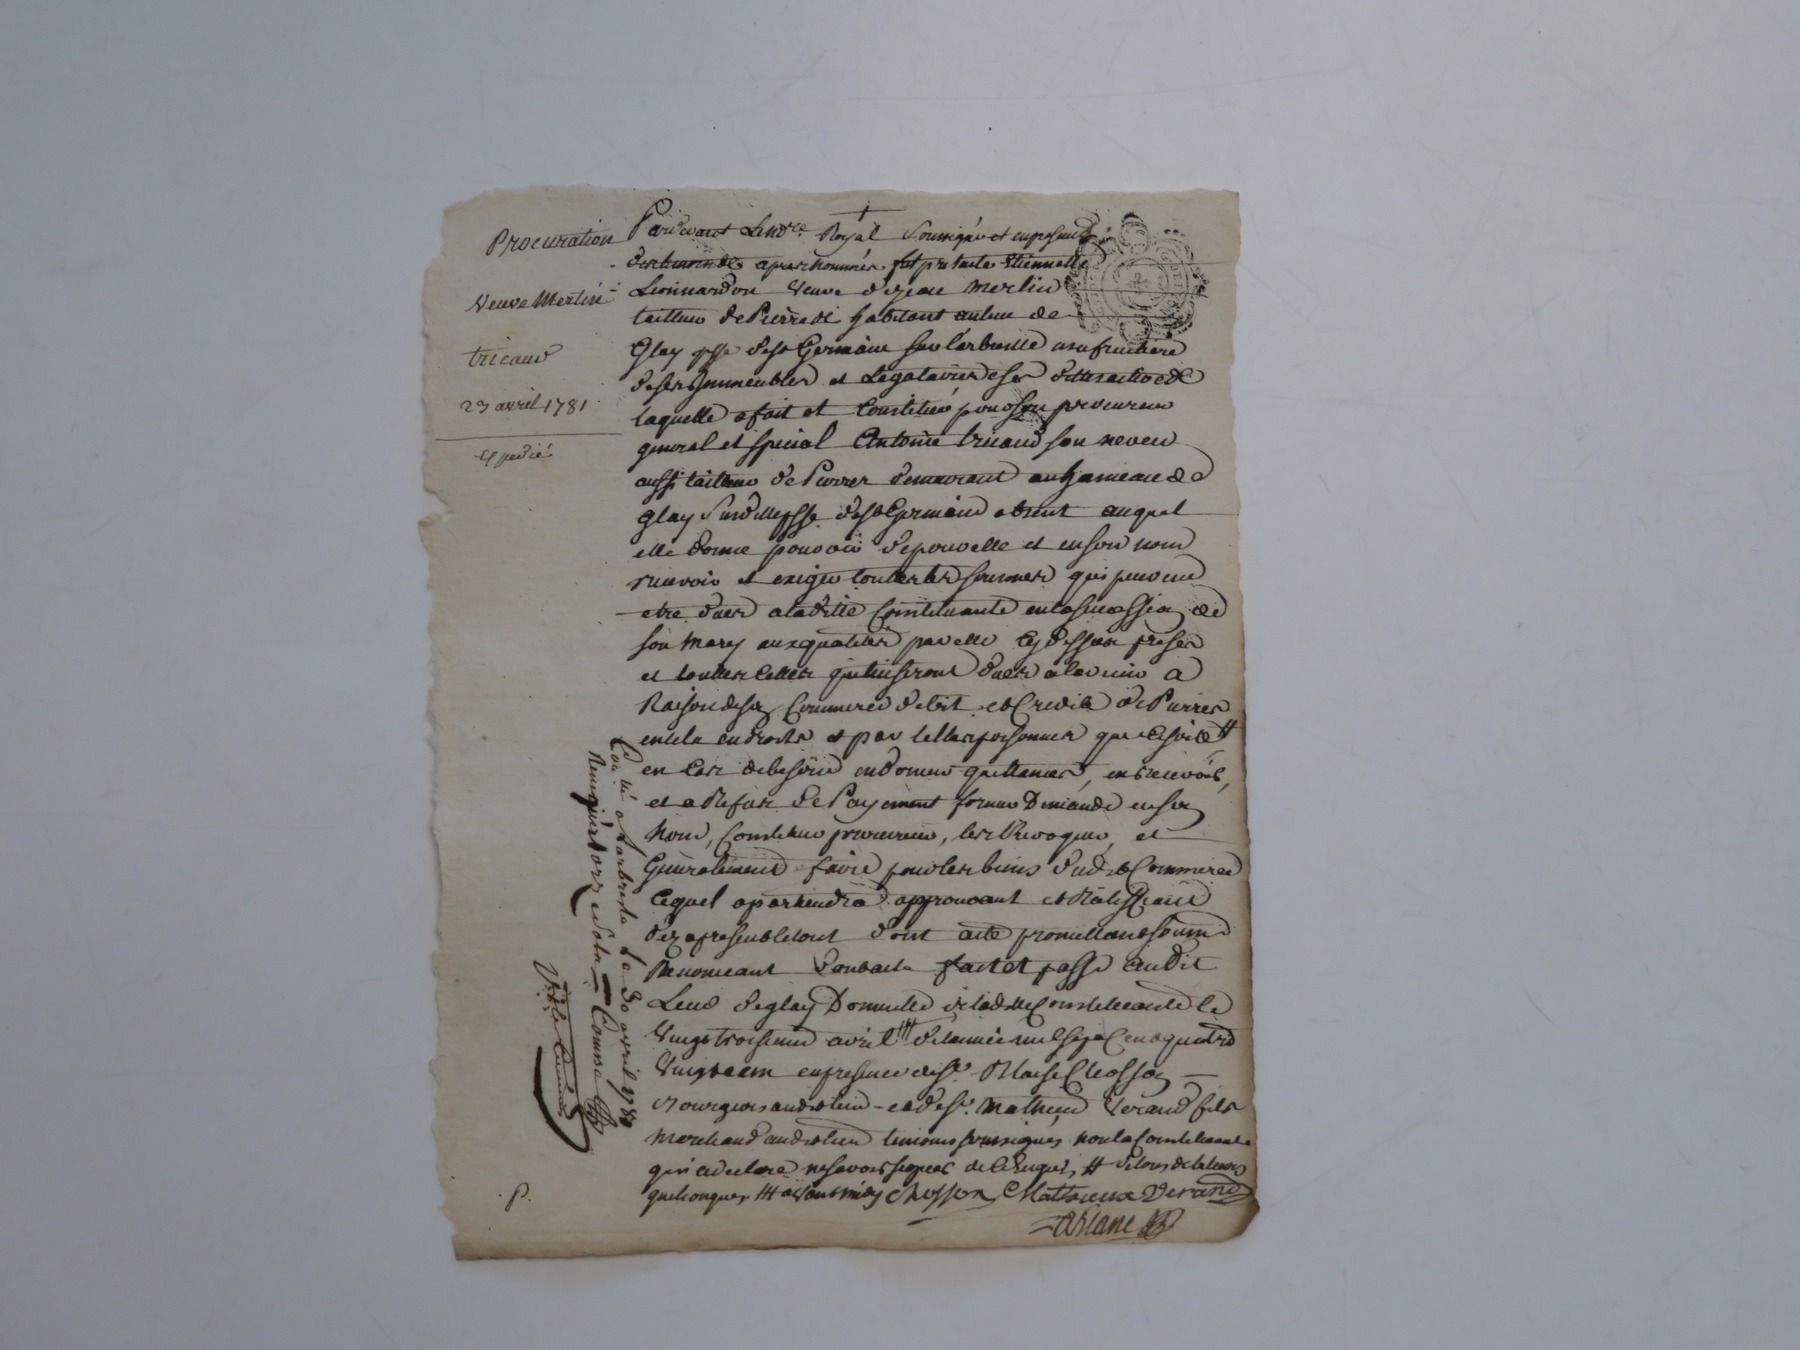 Procuration
Veuve Merlin
tricaud
23 avril 1781
Expedié
Pardevant Le nore Royal soussigné et en presence
des temoins apres nommés fut presente Etiennette
Leonnardon veuve de Jean Merlin
tailleur de Pierre de habitant au lieu de
Glay psse de st Germain sur Larbresle usufruitiere
de ses immeubles et Legataire de ses
laquelle a fait et Constitué pour son procureur
general et special Antoine tricaud son neveu
aussi tailleur de Pierres demeurant au hameau de
Glay susditte psse de st Germain absent auquel
elle donne pouvoir de pour elle et en son nom
recevoir et exiger touttes les sommes qui peuvent
etre dues a laditte Constituante en la succession de
son mary aux qualités par elle cy dessus prises
et touttes celles qui luy seront dues a lavenir a
Raison de son Commerce debit et Credit de Pierres
en tels endroits et par telles personnes que ce soit #
en Cas de besoin en donner quittances, en recevoir,
et a Refus de Payement former Demande en son
Nom, Constituer procureur, les Revoquer, et
Generalement faire pour les biens dudt Commerce
Ce quil apartiendra approuvant et Ratiffiant
des a present le tout dont acte promettant soumt
Renonceant fait et passé audit
Lieu de glay Domicille de laditte Constituante le
Vingt troisieme avril /// de lannée mil sept Cent quatre
Vingt un en presence de sr Blaise Chosson
Bourgeois audit lieu et de sr Mathieu Verand fils
Marchand audit lieu temoins soussignés non la Constituante
qui a declaré ne savoir signer de ce Enquis, #
quelconques, /// avant midy Chosson Mathieux Verand
P.
Con lé a Larbresle Le 30 avril 1781